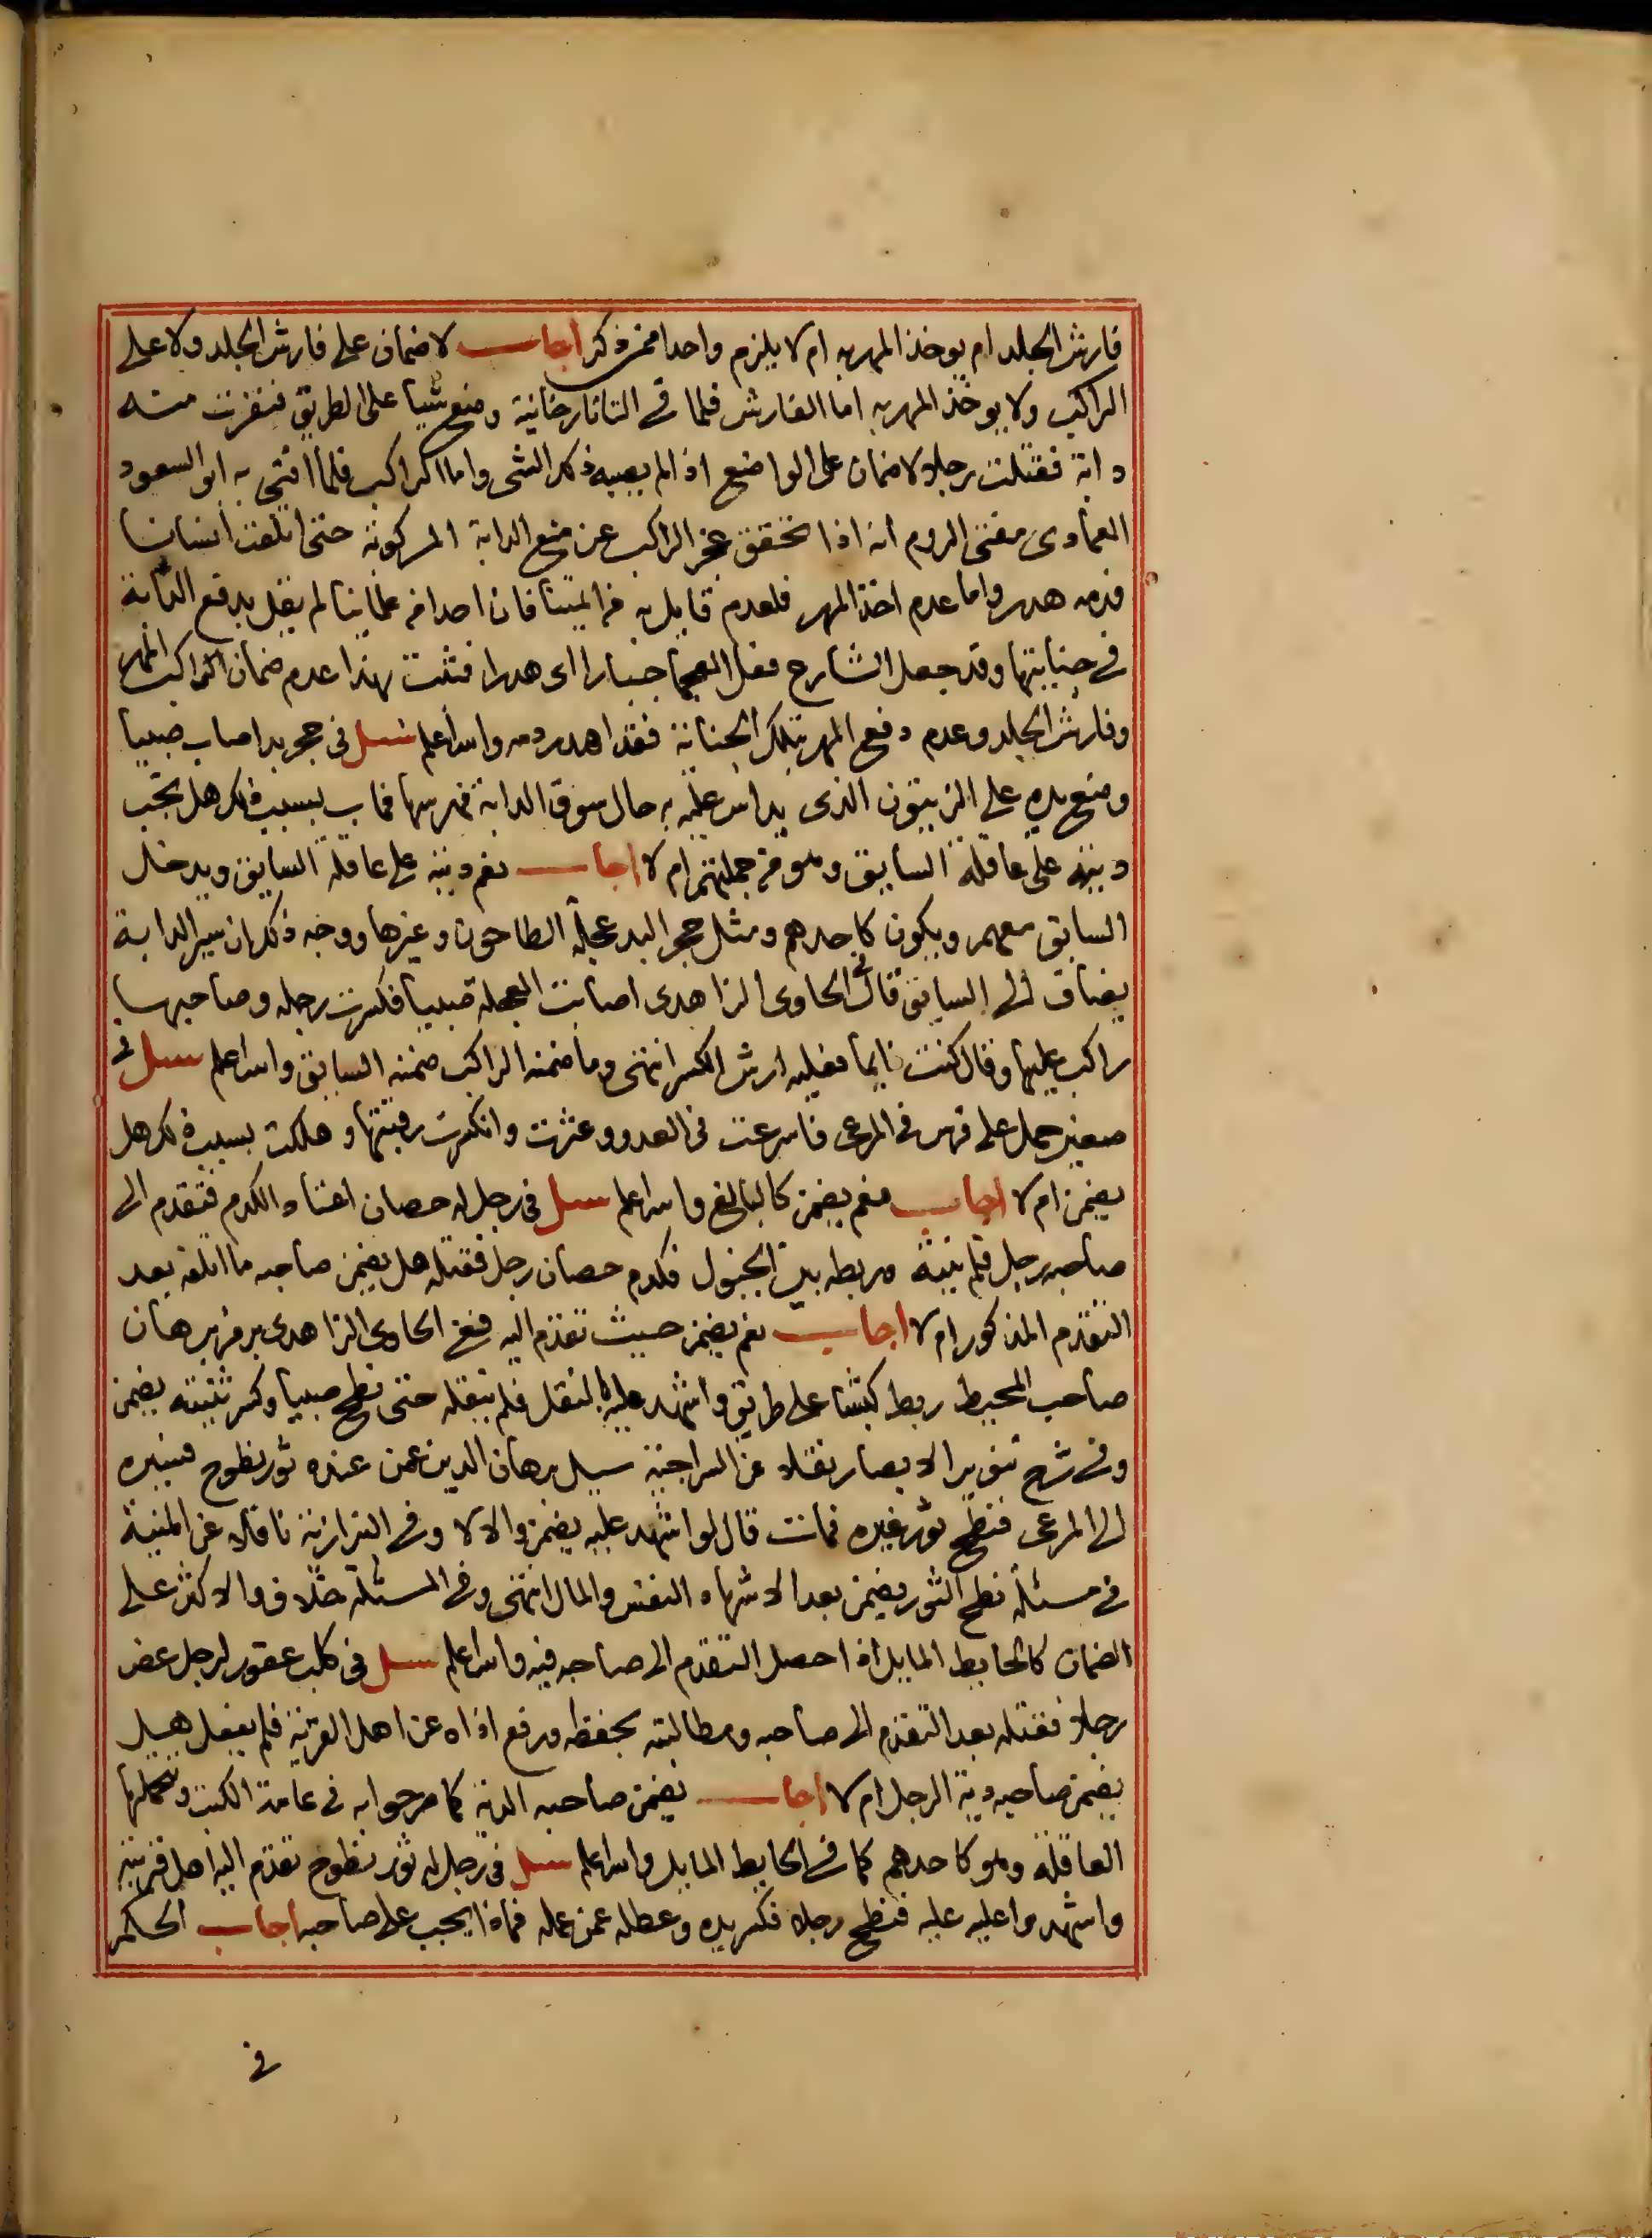 فارش الجلد ام يوخذ المهر به ام لا يلزم واحدا ممن ذكر اجاب لا ضمان على فارش الجلد ولا على
الراكب ولا يوخذ المهر به اما الفارش فلما في التاتارخانية وضع شيا على الطريق فنفرت منه
دابة فقتلت رجلا لا ضمان على الواضع اذا لم يصبه ذلك الشى واما الراكب فلما افتى به ابو السعود
العمادى مفتى الروم انه اذا تحقق عجز الراكب عن منع الدابة المركوبة حتى اتلفت انسانا
فدمه هدر واما عدم اخذ المهر فلعدم قايل به من ايمتنا فان احدا من علماينا لم يقل بدفع الدابة
في جنايتها وقد جعل الشارع فعل العجما جبارا اى هدرا فثبت بهذا عدم ضمان الراكب المهر
وفارش الجلد وعدم دفع المهر بتلك الجناية فقد اهدر دمه والله اعلم سيل في حجر بد اصاب صبيا
وضع يده على الزيتون الذى يداس عليه به حال سوق الدابة فهرسها فمات بسبب ذلك هل تجب
ديته على عاقلة السايق وهو من جملتهم ام لا اجاب نعم ديته على عاقلة السايق ويدخل
السايق معهم ويكون كاحدهم ومثل حجر البد عجلة الطاحون وغيرها ووجه ذلك ان سير الدابة
يضاف الى السايق قال في الحاوى الزاهدى اصابت العجلة صبيا فكسرت رجله وصاحبها
راكب عليها وقال كنت نايما فعليه ارش الكسر انتهى وما ضمنه الراكب ضمنه السايق والله اعلم سيل في
صغير حمل على فرس في المرعى فاسرعت في العدو وعثرت وانكسرت رقبتها وهلكت بسبب ذلك هل
يضمن ام لا اجاب نعم يضمن كالبالغ والله اعلم سيل في رجل له حصان اعتاد الكدم فتقدم الى
صاحبه رجل فلم ينته وربطه بين الخيول فكدم حصان رجل فقتله هل يضمن صاحبه ما اتلفه بعد
التقدم المذكور ام لا اجاب نعم يضمن حيث تقدم اليه ففى الحاوى الزاهدى برمز برهان
صاحب المحيط ربط كبشا على طريق واشهد عليه بالنقل فلم ينقله حتى نطح صبيا وكسر ثنيته يضمن
وفي شرح تنوير الابصار نقلا عن السراجية سيل برهان الدين عمن عنده ثور نطوح فسيره
الى المرعى فنطح ثور غيره فمات قال لو اشهد عليه يضمن والا لا وفي البزازية ناقلا عن المنية
في مسئلة نطح الثور يضمن بعد الاشهاد النفس والمال انتهى وفي المسئلة خلاف والاكثر على
الضمان كالحايط المايل اذا حصل التقدم الى صاحبه فيه والله اعلم سيل في كلب عقور لرجل عض
رجلا فقتله بعد التقدم الى صاحبه ومطالبته بحفظه ورفع اذاه عن اهل القرية فلم يفعل هل
يضمن صاحبه دية الرجل ام لا اجاب يضمن صاحبه الدية كما مر جوابه في عامة الكتب وتتحملها
العاقلة وهو كاحدهم كما في الحايط المايل والله اعلم سيل في رجل له ثور نطوح تقدم اليه اهل قريته
واشهدوا عليه عليه فنطح رجلا فكسر يده وعطله عن عمله فماذا يجب على صاحبه اجاب الحكم
في